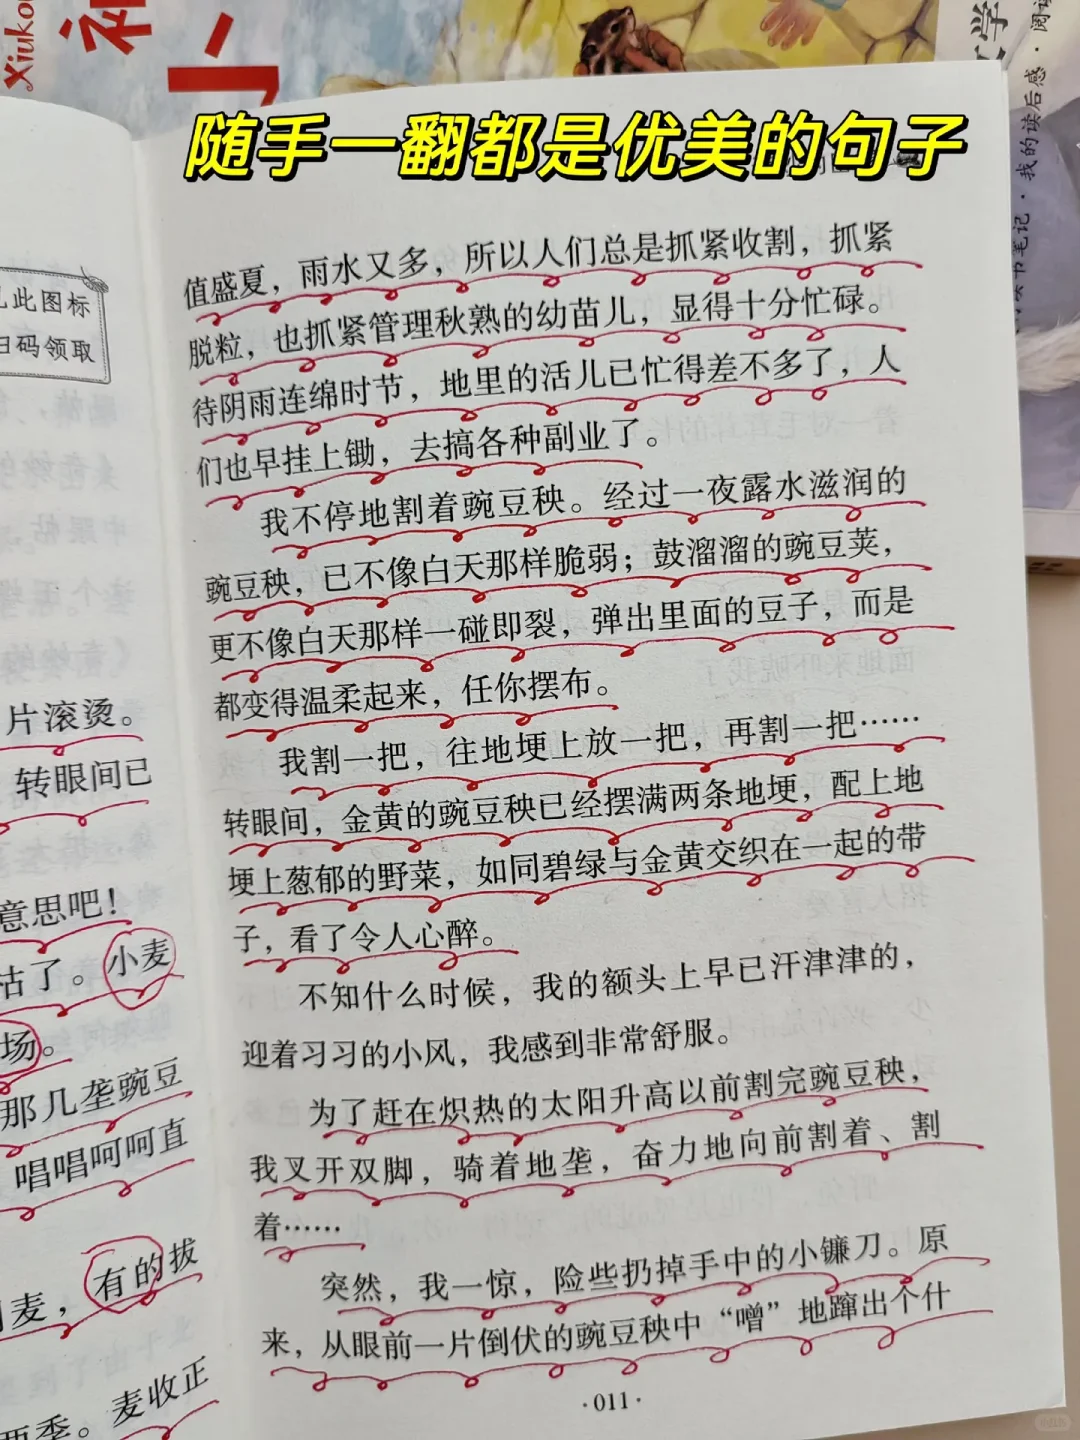 Xiukou
随手一翻都是优美的句子
读书笔记·我的读后感·阅读
此图标
扫码领取
片滚烫。
转眼间已
意思吧！
枯了。小麦
场。
那几垄豌豆
唱唱呵呵直
麦，有的拔
两季。麦收正
值盛夏，雨水又多，所以人们总是抓紧收割，抓紧
脱粒，也抓紧管理秋熟的幼苗儿，显得十分忙碌。
待阴雨连绵时节，地里的活儿已忙得差不多了，人
们也早挂上锄，去搞各种副业了。
我不停地割着豌豆秧。经过一夜露水滋润的
豌豆秧，已不像白天那样脆弱；鼓溜溜的豌豆荚，
更不像白天那样一碰即裂，弹出里面的豆子，而是
都变得温柔起来，任你摆布。
我割一把，往地埂上放一把，再割一把……
转眼间，金黄的豌豆秧已经摆满两条地埂，配上地
埂上葱郁的野菜，如同碧绿与金黄交织在一起的带
子，看了令人心醉。
不知什么时候，我的额头上早已汗津津的，
迎着习习的小风，我感到非常舒服。
为了赶在炽热的太阳升高以前割完豌豆秧，
我叉开双脚，骑着地垄，奋力地向前割着、割
着……
突然，我一惊，险些扔掉手中的小镰刀。原
来，从眼前一片倒伏的豌豆秧中“噌”地蹿出个什
·011·